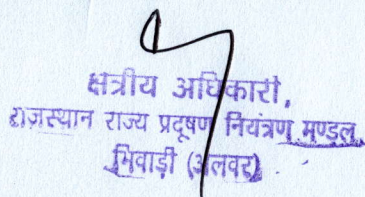 क्षत्रीय अधिकारी,
राजस्थान राज्य प्रदूषण नियंत्रण मण्डल
भिवाड़ी (अलवर)